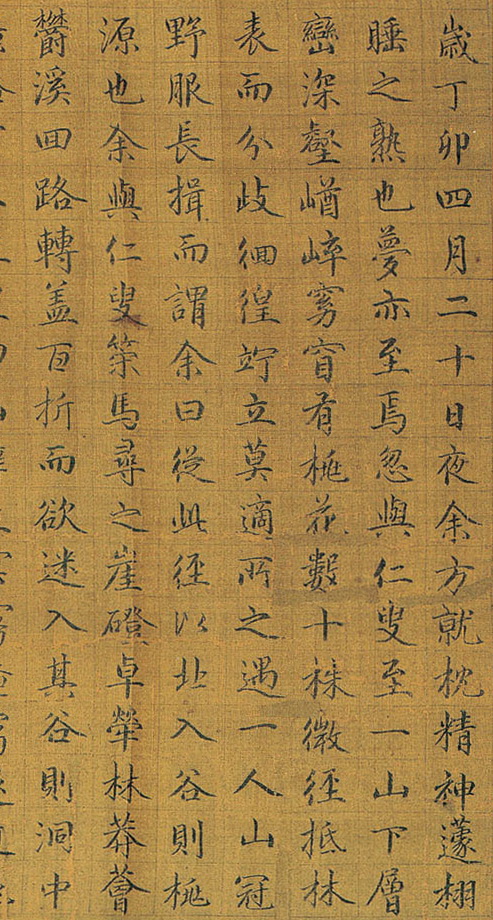 歲丁卯四月二十日夜余方就枕精神蘧栩
睡之熟也夢亦至焉忽與仁叟至一山下層
巒深壑崷崒窈窅有桃花數十株微徑抵林
表而分歧徊徨竚立莫適所之遇一人山冠
野服長揖而謂余曰從此徑以北入谷則桃
源也余與仁叟策馬尋之崖磴卓犖林莽薈
鬱溪回路轉盖百折而欲迷入其谷則洞中